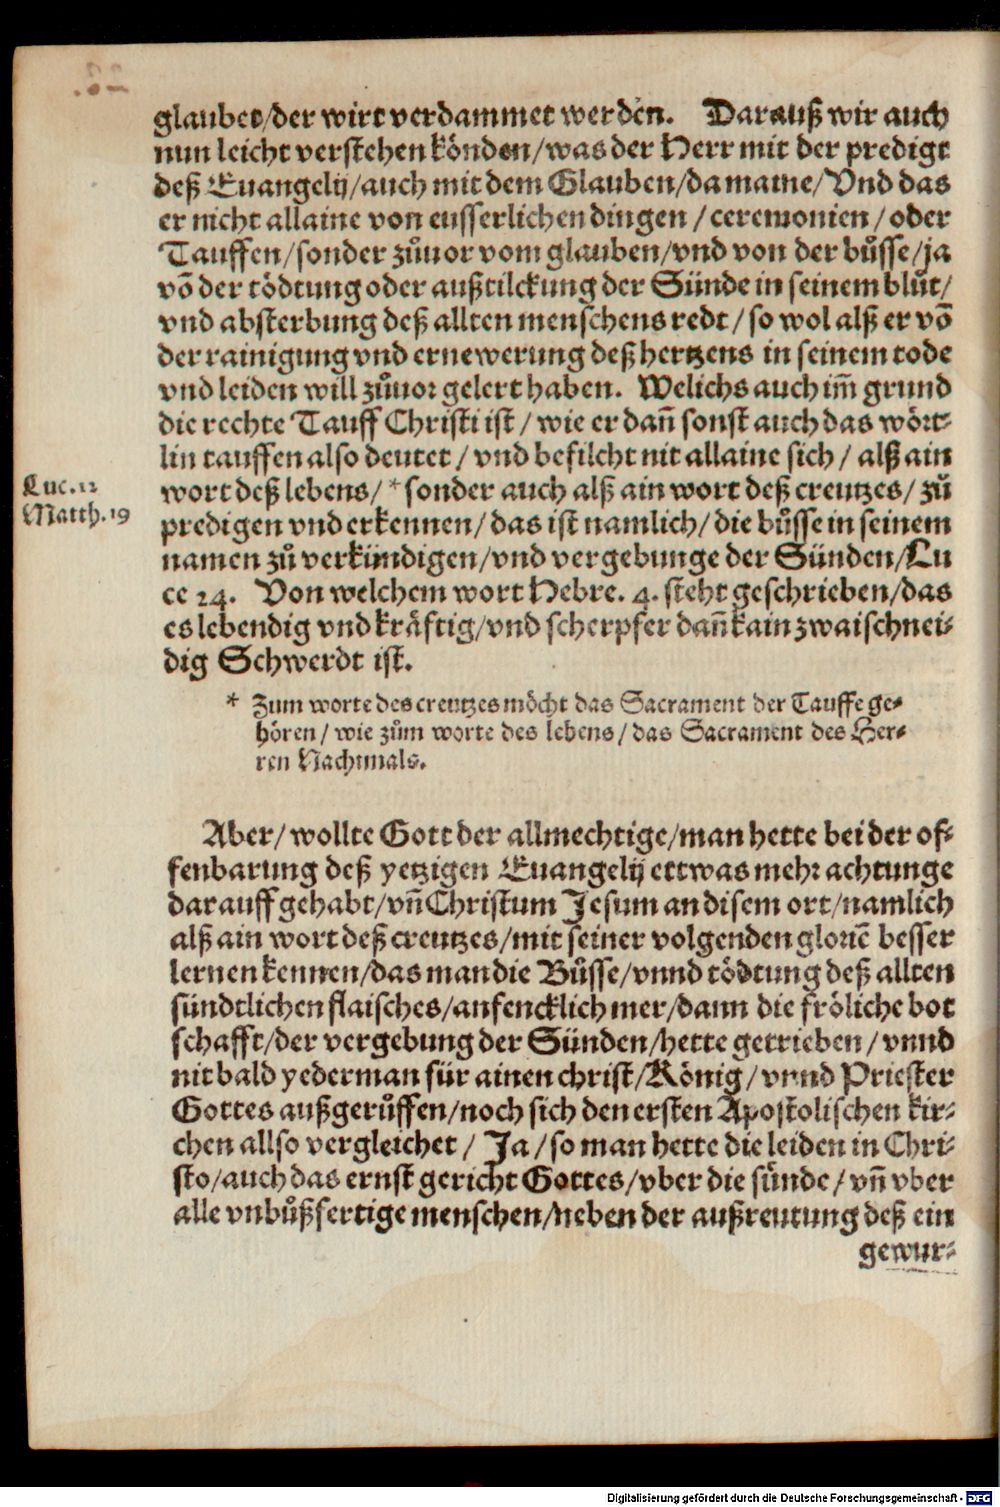 glaubet/der wirt verdammet werden. Darauß wir auch
nun leicht verstehen könden/was der Herr mit der predigt
deß Euangelij/auch mit dem Glauben/da maine/Vnd das
er nicht allaine von eusserlichen dingen/ceremonien/oder
Tauffen/sonder zůuor vom glauben/vnd von der bůsse/ja
võ der tödtung oder außtilckung der Sünde in seinem blůt/
vnd absterbung deß allten menschens redt/so wol alß er võ
der rainigung vnd ernewerung deß hertzens in seinem tode
vnd leiden will zůuor gelert haben. Welichs auch im̃ grund
die rechte Tauff Christi ist/wie er dañ sonst auch das wört-
lin tauffen also deutet/vnd befilcht nit allaine sich/alß ain
Luc. 12
Matth. 19
wort deß lebens/*sonder auch alß ain wort deß creutzes/zů
predigen vnd erkennen/das ist namlich/die bůsse in seinem
namen zů verkündigen/vnd vergebunge der Sünden/Lu
ce 24. Von welchem wort Hebre. 4. steht geschrieben/das
es lebendig vnd kräftig/vnd scherpfer dañ kain zwaischnei-
dig Schwerdt ist.
* Zum worte des creutzes möcht das Sacrament der Tauffe ge-
hören/wie zům worte des lebens/das Sacrament des Her-
ren Nachtmals.
Aber/wollte Gott der allmechtige/man hette bei der of-
fenbarung deß yetzigen Euangelij ettwas mehr achtunge
darauff gehabt/vñ Christum Jesum an disem ort/namlich
alß ain wort deß creutzes/mit seiner volgenden gloriẽ besser
lernen kennen/das man die Bůsse/vnnd tödtung deß allten
sündtlichen flaisches/anfencklich mer/dann die fröliche bot
schafft/der vergebung der Sünden/hette getrieben/vnnd
nit bald yederman für ainen christ/König/vnnd Priester
Gottes außgerůffen/noch sich den ersten Apostolischen kir-
chen allso vergleichet/Ja/so man hette die leiden in Chri-
sto/auch das ernst gericht Gottes/vber die sünde/vñ vber
alle vnbůßfertige menschen/neben der außreutung deß ein
gewur-
Digitalisierung gefördert durch die Deutsche Forschungsgemeinschaft - DFG